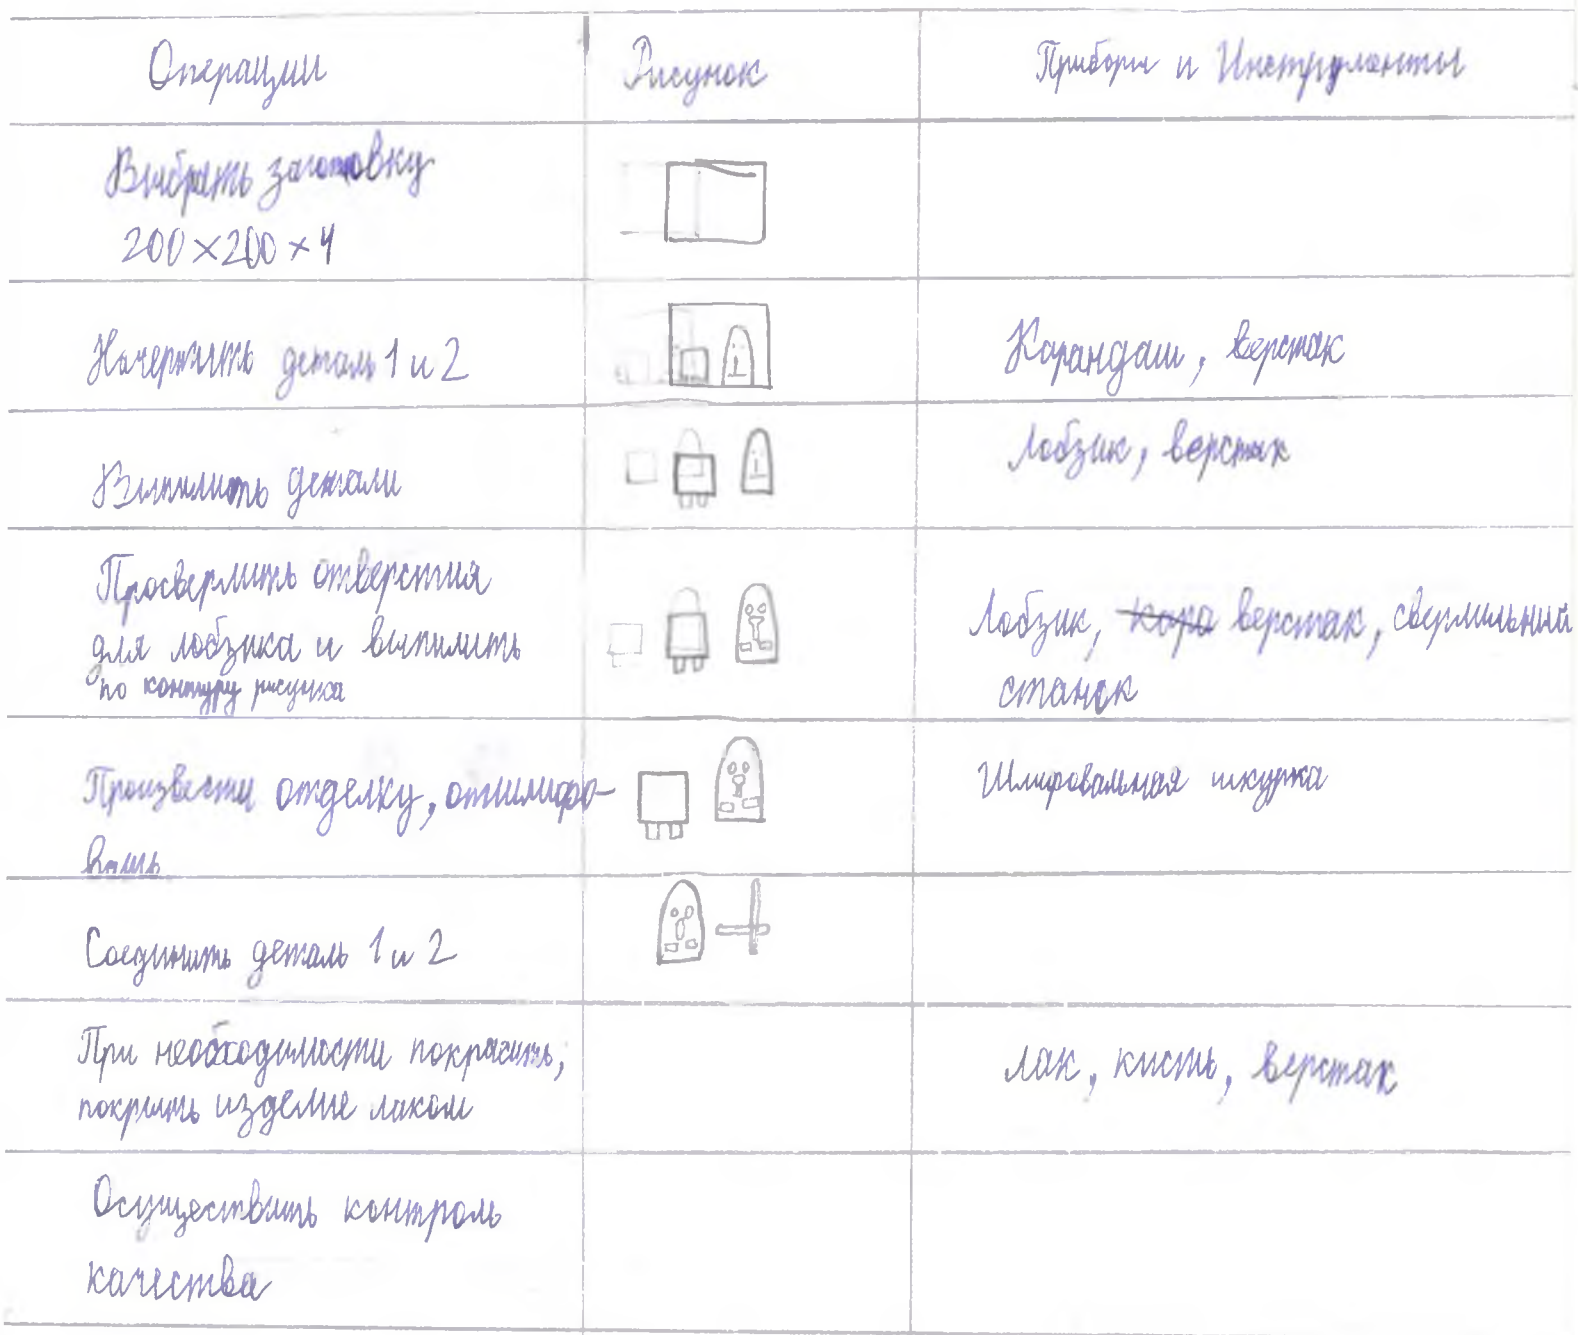 Операции Рисунок Приборы и Инструменты
Выбрать заготовку
200×200×4
Начертить деталь 1 и 2 Карандаш, верстак
Выпилить детали Лобзик, верстак
Просверлить отверстия
для лобзика и выпилить Лобзик, кара верстак, сверлильный
по контуру рисунка станок
Произвести отделку, отшлифо- Шлифовальная шкурка
вать
Соединить деталь 1 и 2
При необходимости покрасить, Лак, кисть, верстак
покрыть изделие лаком
Осуществить контроль
качества